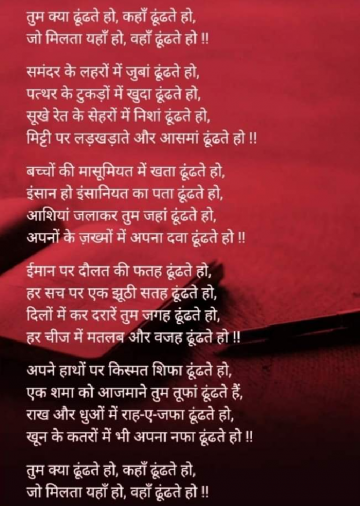 तुम क्या ढूंढते हो, कहाँ ढूंढते हो,
जो मिलता यहाँ हो, वहाँ ढूंढते हो !!
समंदर के लहरों में जुबां ढूंढते हो,
पत्थर के टुकड़ों में खुदा ढूंढते हो,
सूखे रेत के सेहरों में निशां ढूंढते हो,
मिट्टी पर लड़खड़ाते और आसमां ढूंढते हो !!
बच्चों की मासूमियत में खता ढूंढते हो,
इंसान हो इंसानियत का पता ढूंढते हो,
आशियां जलाकर तुम जहां ढूंढते हो,
अपनों के ज़ख्मों में अपना दवा ढूंढते हो !!
ईमान पर दौलत की फतह ढूंढते हो,
हर सच पर एक झूठी सतह ढूंढते हो,
दिलों में कर दरारें तुम जगह ढूंढते हो,
हर चीज में मतलब और वजह ढूंढते हो !!
अपने हाथों पर किस्मत शिफा ढूंढते हो,
एक शमा को आजमाने तुम तूफां ढूंढते हैं,
राख और धुओं में राह-ए-जफा ढूंढते हो,
खून के कतरों में भी अपना नफा ढूंढते हो !!
तुम क्या ढूंढते हो, कहाँ ढूंढते हो,
जो मिलता यहाँ हो, वहाँ ढूंढते हो !!